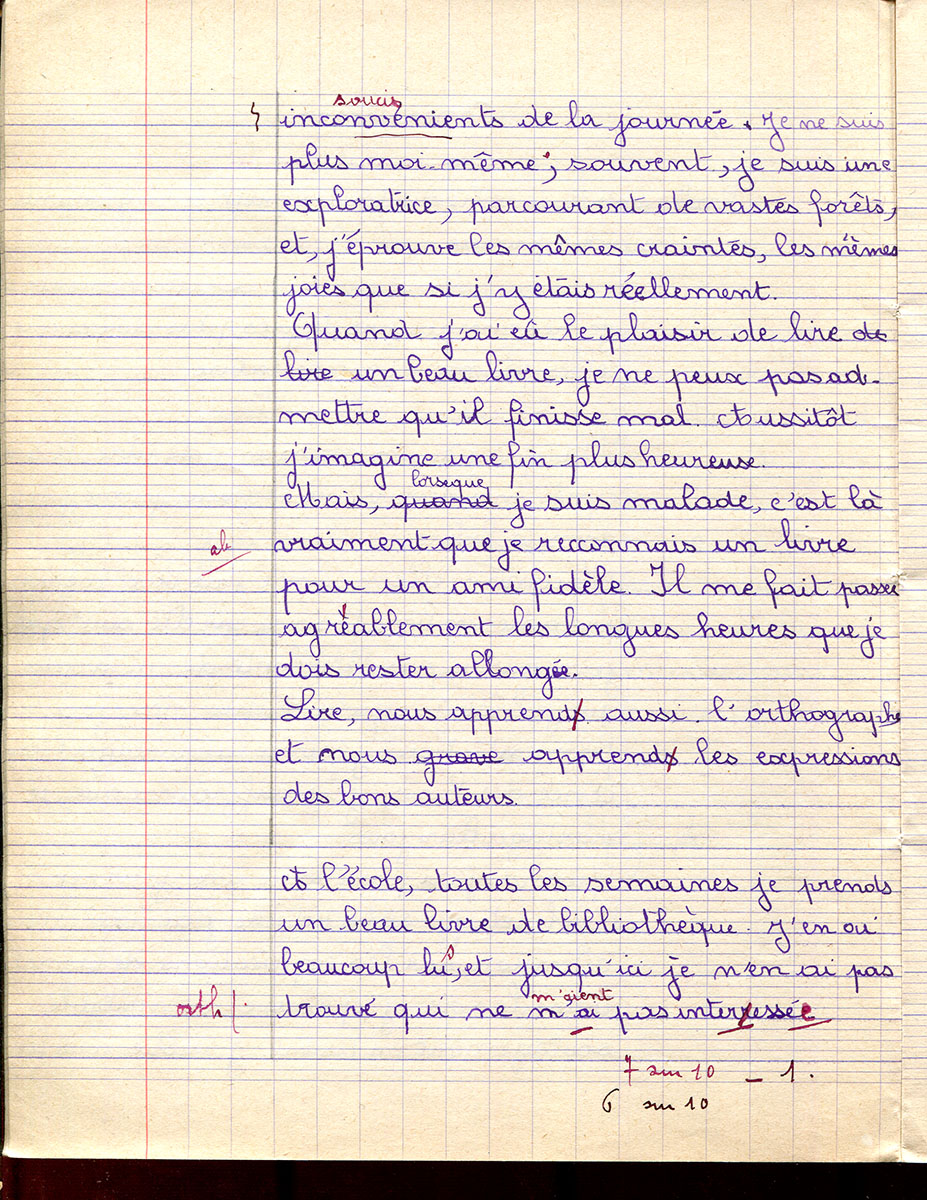 soucis
inconvénients de la journée. Je ne suis
plus moi-même ; souvent, je suis une
exploratrice, parcourant de vastes forêts,
et, j'éprouve les mêmes craintes, les mêmes
joies que si j'y étais réellement.
Quand j'ai eû le plaisir de lire de
lire un beau livre, je ne peux pas ad-
mettre qu'il finisse mal. Aussitôt
j'imagine une fin plus heureuse.
lorsque
Mais, quand je suis malade, c'est là
vraiment que je reconnais un livre
pour un ami fidèle. Il me fait passer
agréablement les longues heures que je
dois rester allongée.
Lire, nous apprends aussi l'orthographe
et nous grave apprends les expressions
des bons auteurs.
A l'école, toutes les semaines je prends
un beau livre de bibliothèque. J'en ai
beaucoup lus, et jusqu'ici je n'en ai pas
m'aient
orth trouvé qui ne m'ai pas interressée
7 sur 10 – 1.
6 sur 10